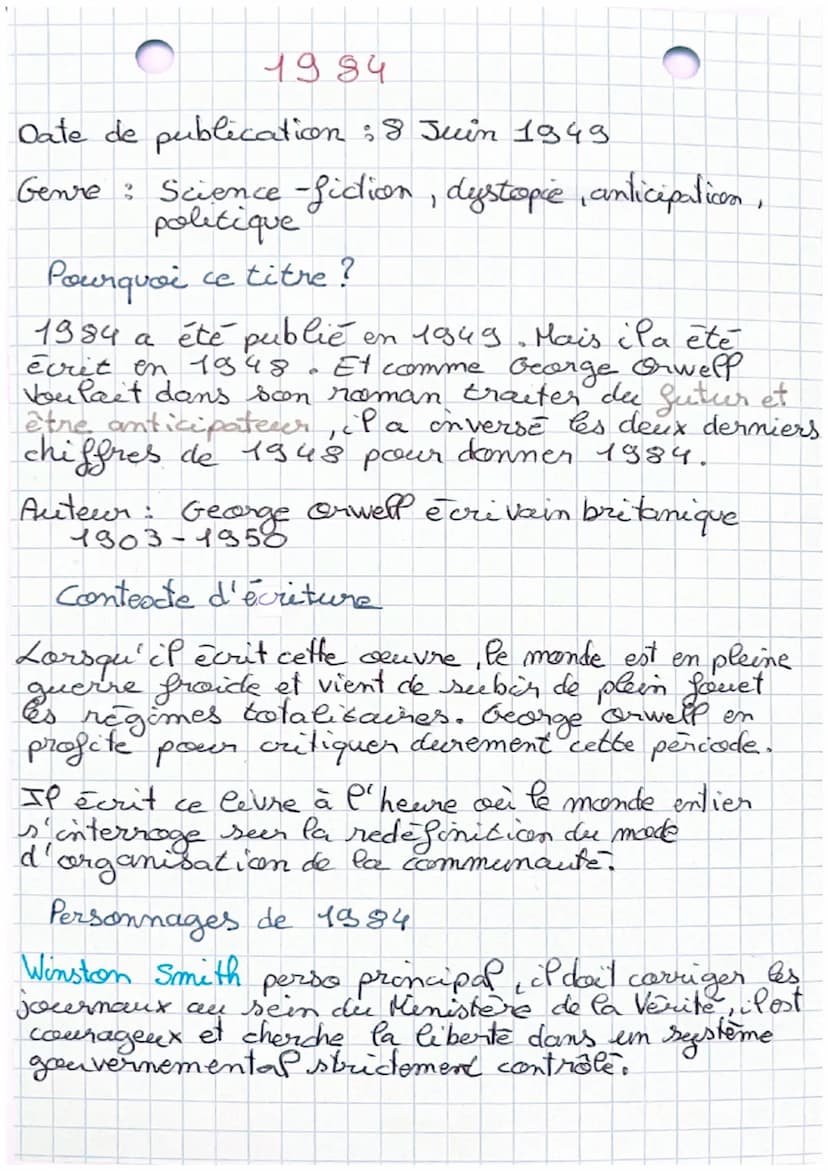 1984
Date de publication : 8 Juin 1949
Genre : Science-fiction, dystopie, anticipation,
politique
Pourquoi ce titre ?
1984 a été publié en 1949. Mais il a été
écrit en 1948. Et comme George Orwell
voulait dans son roman traiter du futur et
être anticipateur, il a inversé les deux derniers
chiffres de 1948 pour donner 1984.
Auteur : George Orwell écrivain britanique
1903-1950
Contexte d'écriture
Lorsqu'il écrit cette oeuvre, le monde est en pleine
guerre froide et vient de subir de plein fouet
les régimes totalitaires. George Orwell en
profite pour critiquer durement cette période.
Il écrit ce livre à l'heure où le monde entier
s'interroge sur la redéfinition du mode
d'organisation de la communauté.
Personnages de 1984
Winston Smith perso principal, il doit corriger les
journaux au sein du Ministère de la Vérité, il est
courageux et cherche la liberté dans un système
gouvernemental strictement contrôlé.